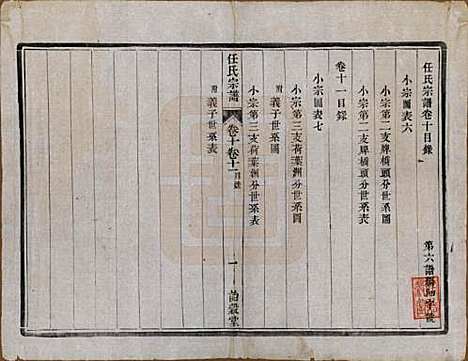 任氏宗譜卷十目錄
第六譜
小宗圖表六
小宗第二支牌橋頭分世系圖
小宗第二支牌橋頭分世系表
卷十一目錄
小宗圖表七
小宗第三支荷葉洲分世系圖
附 義子世系圖
小宗第三支荷葉洲分世系表
任氏宗譜
卷十卷十一
目錄
一
附 義子世系表